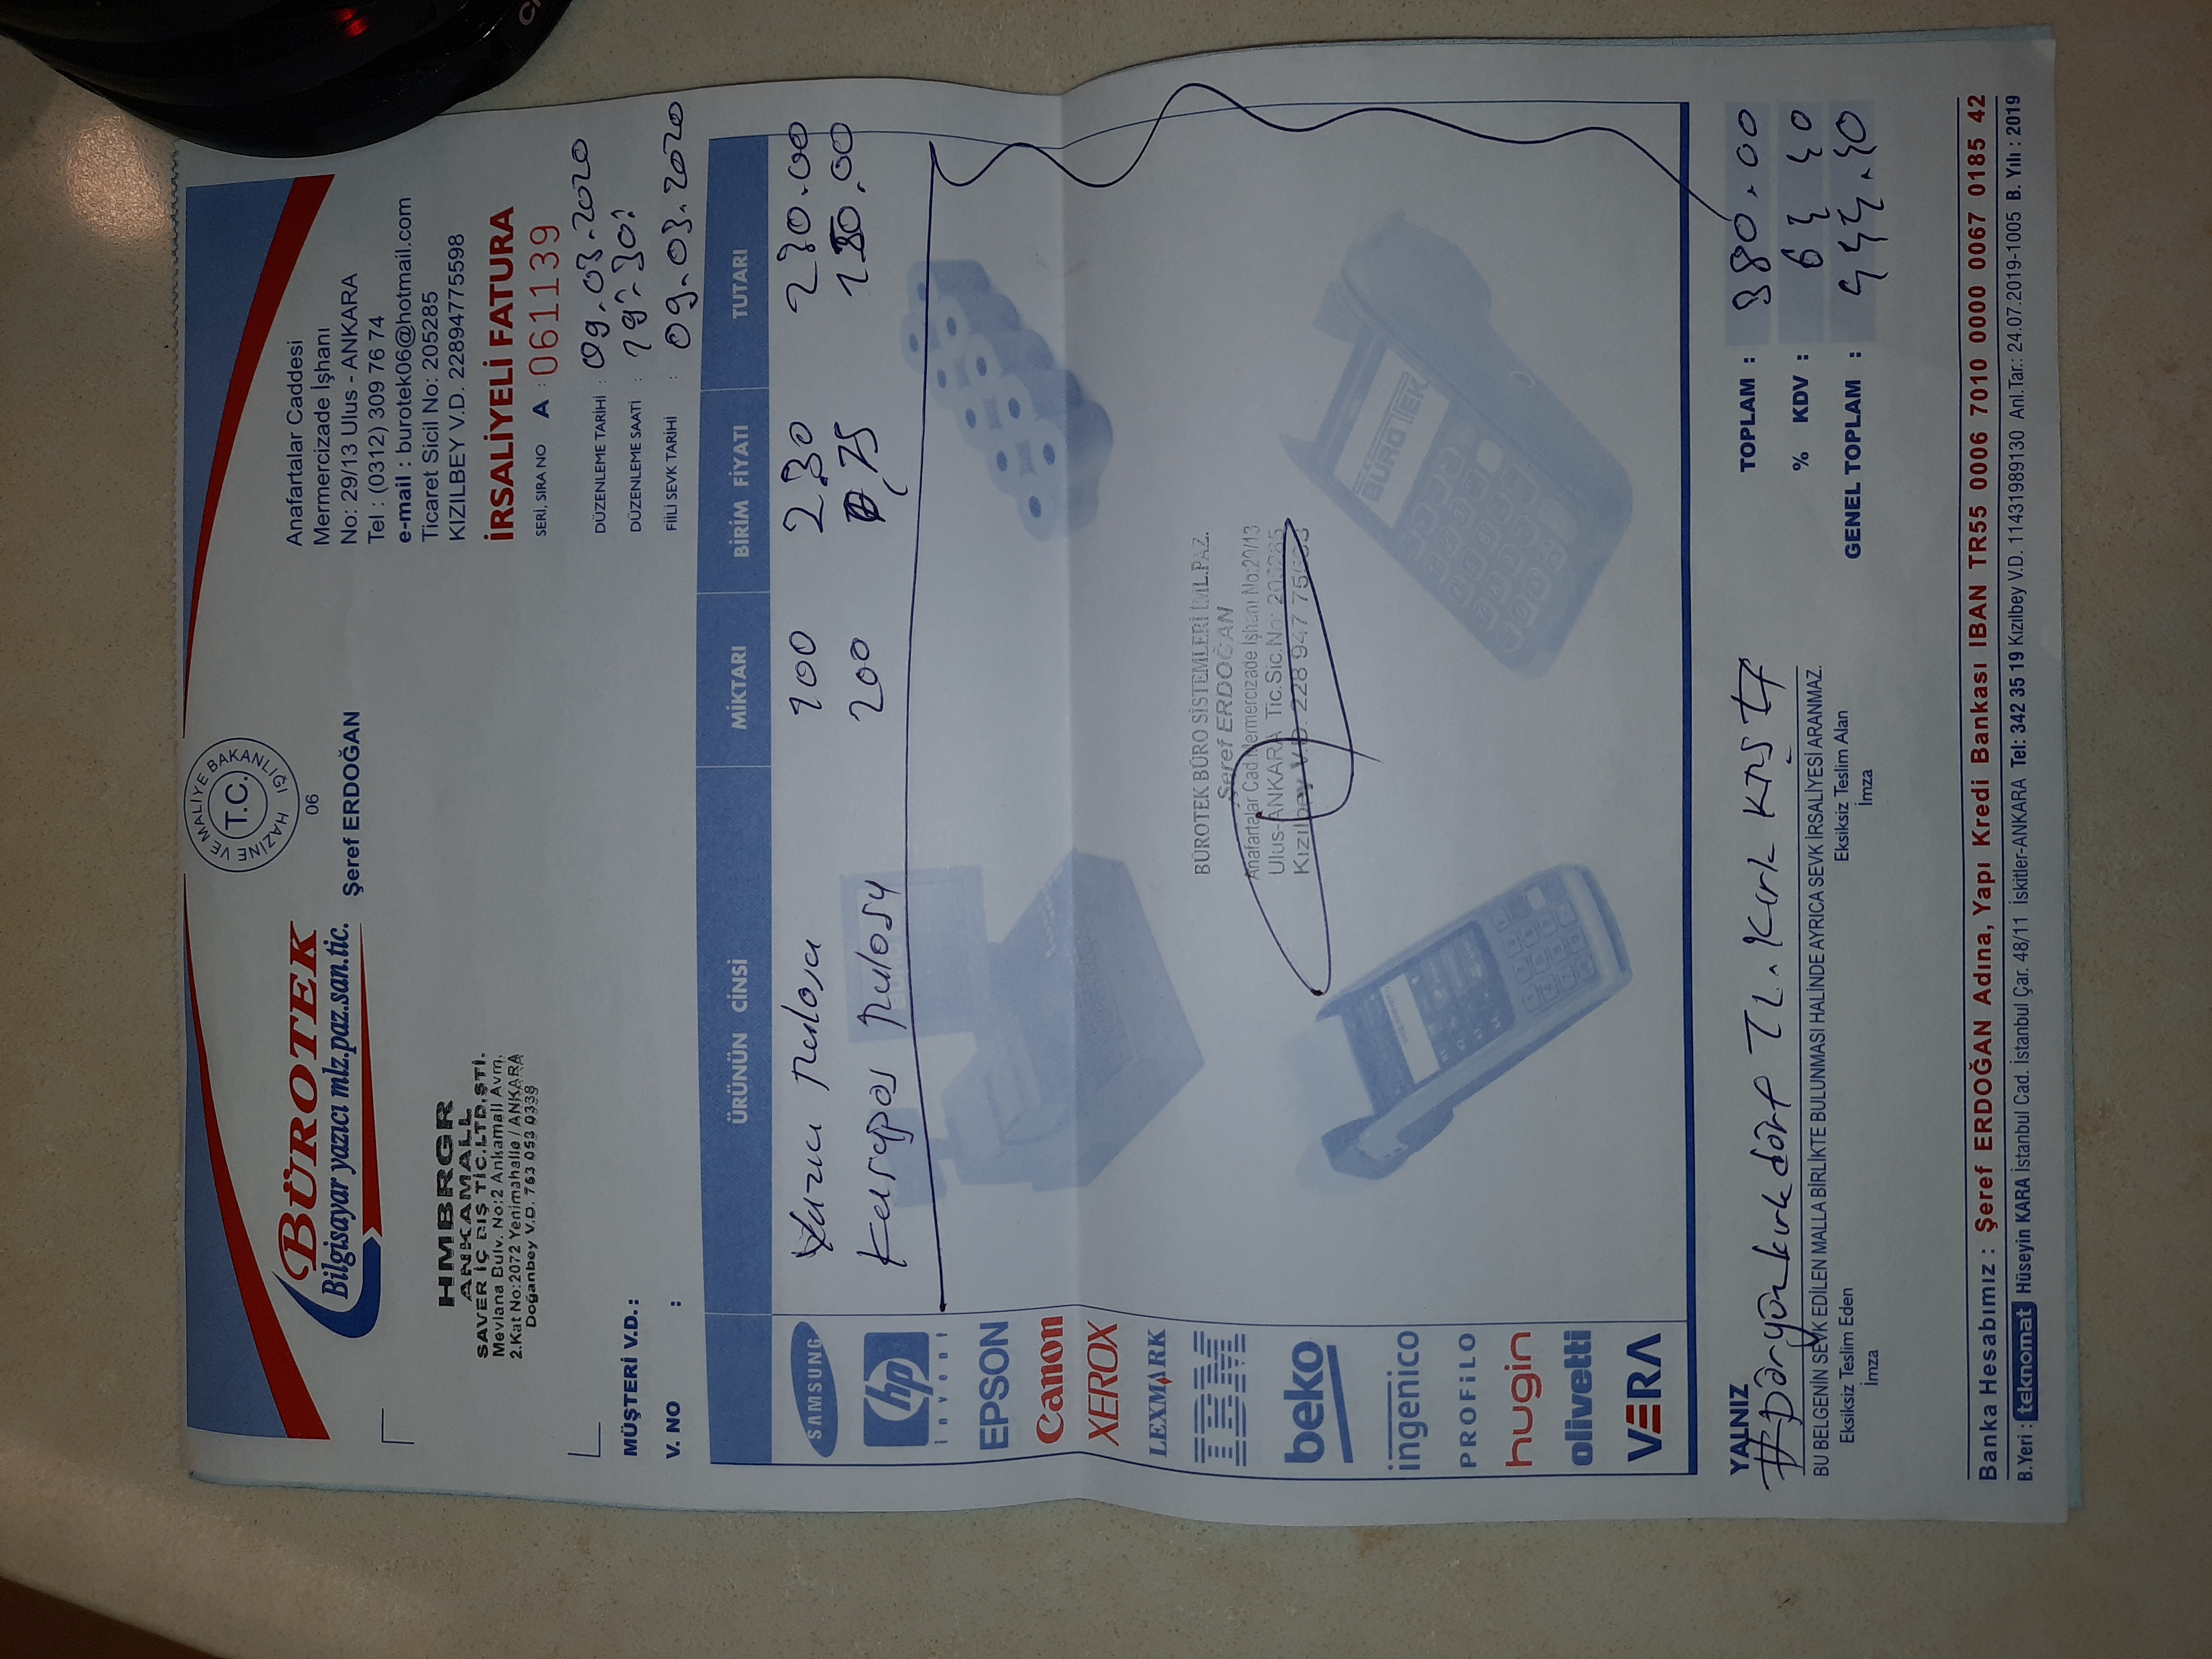 T.C. HAZİNE VE MALİYE BAKANLIĞI
06
BÜROTEK
Bilgisayar yazıcı mlz.paz.san.tic.
Şeref ERDOĞAN
Anafartalar Caddesi
Mermercizade İşhanı
No: 29/13 Ulus - ANKARA
Tel : (0312) 309 76 74
e-mail : burotek06@hotmail.com
Ticaret Sicil No: 205285
KIZILBEY V.D. 22894775598
HMBRGR
ANKAMALL
SAVER İÇ DIŞ TİC.LTD.ŞTİ.
Mevlana Bulv. No:2 Ankamall Avm.
2.Kat No:2072 Yenimahalle / ANKARA
Doğanbey V.D. 763 053 0338
İRSALİYELİ FATURA
SERİ, SIRA NO A : 061139
DÜZENLEME TARİHİ : 09.03.2020
DÜZENLEME SAATİ : 19:30
FİİLİ SEVK TARİHİ : 09.03.2020
MÜŞTERİ V.D. :
V. NO :
ÜRÜNÜN CİNSİ MİKTARI BİRİM FİYATI TUTARI
Yazıcı Rulosu 100 2,30 230.00
Rulosu 200 0,75 150,00
SAMSUNG
hp
invent
EPSON
Canon
XEROX
LEXMARK
IBM
beko
ingenico
PROFiLO
hugin
olivetti
VERA
BÜROTEK BÜRO SİSTEMLERİ İML.PAZ.
Şeref ERDOĞAN
Anafartalar Cad.Mermercizade İşhanı No:29/13
Ulus-ANKARA Tic.Sic.No: 205285
Kızılbey V.D. 228 947 75598
BÜROTEK
YALNIZ
#Dörtyüzkırkdört TL. Kırk KRŞ #
BU BELGENİN SEVK EDİLEN MALLA BİRLİKTE BULUNMASI HALİNDE AYRICA SEVK İRSALİYESİ ARANMAZ.
Eksiksiz Teslim Eden
İmza
Eksiksiz Teslim Alan
İmza
TOPLAM : 380.00
% KDV : 64 40
GENEL TOPLAM : 444.40
Banka Hesabımız : Şeref ERDOĞAN Adına, Yapı Kredi Bankası IBAN TR55 0006 7010 0000 0067 0185 42
B.Yeri : teknomat Hüseyin KARA İstanbul Cad. İstanbul Çar. 48/11 İskitler-ANKARA Tel: 342 35 19 Kızılbey V.D. 11431989130 Anl.Tar.: 24.07.2019-1005 B. Yılı : 2019